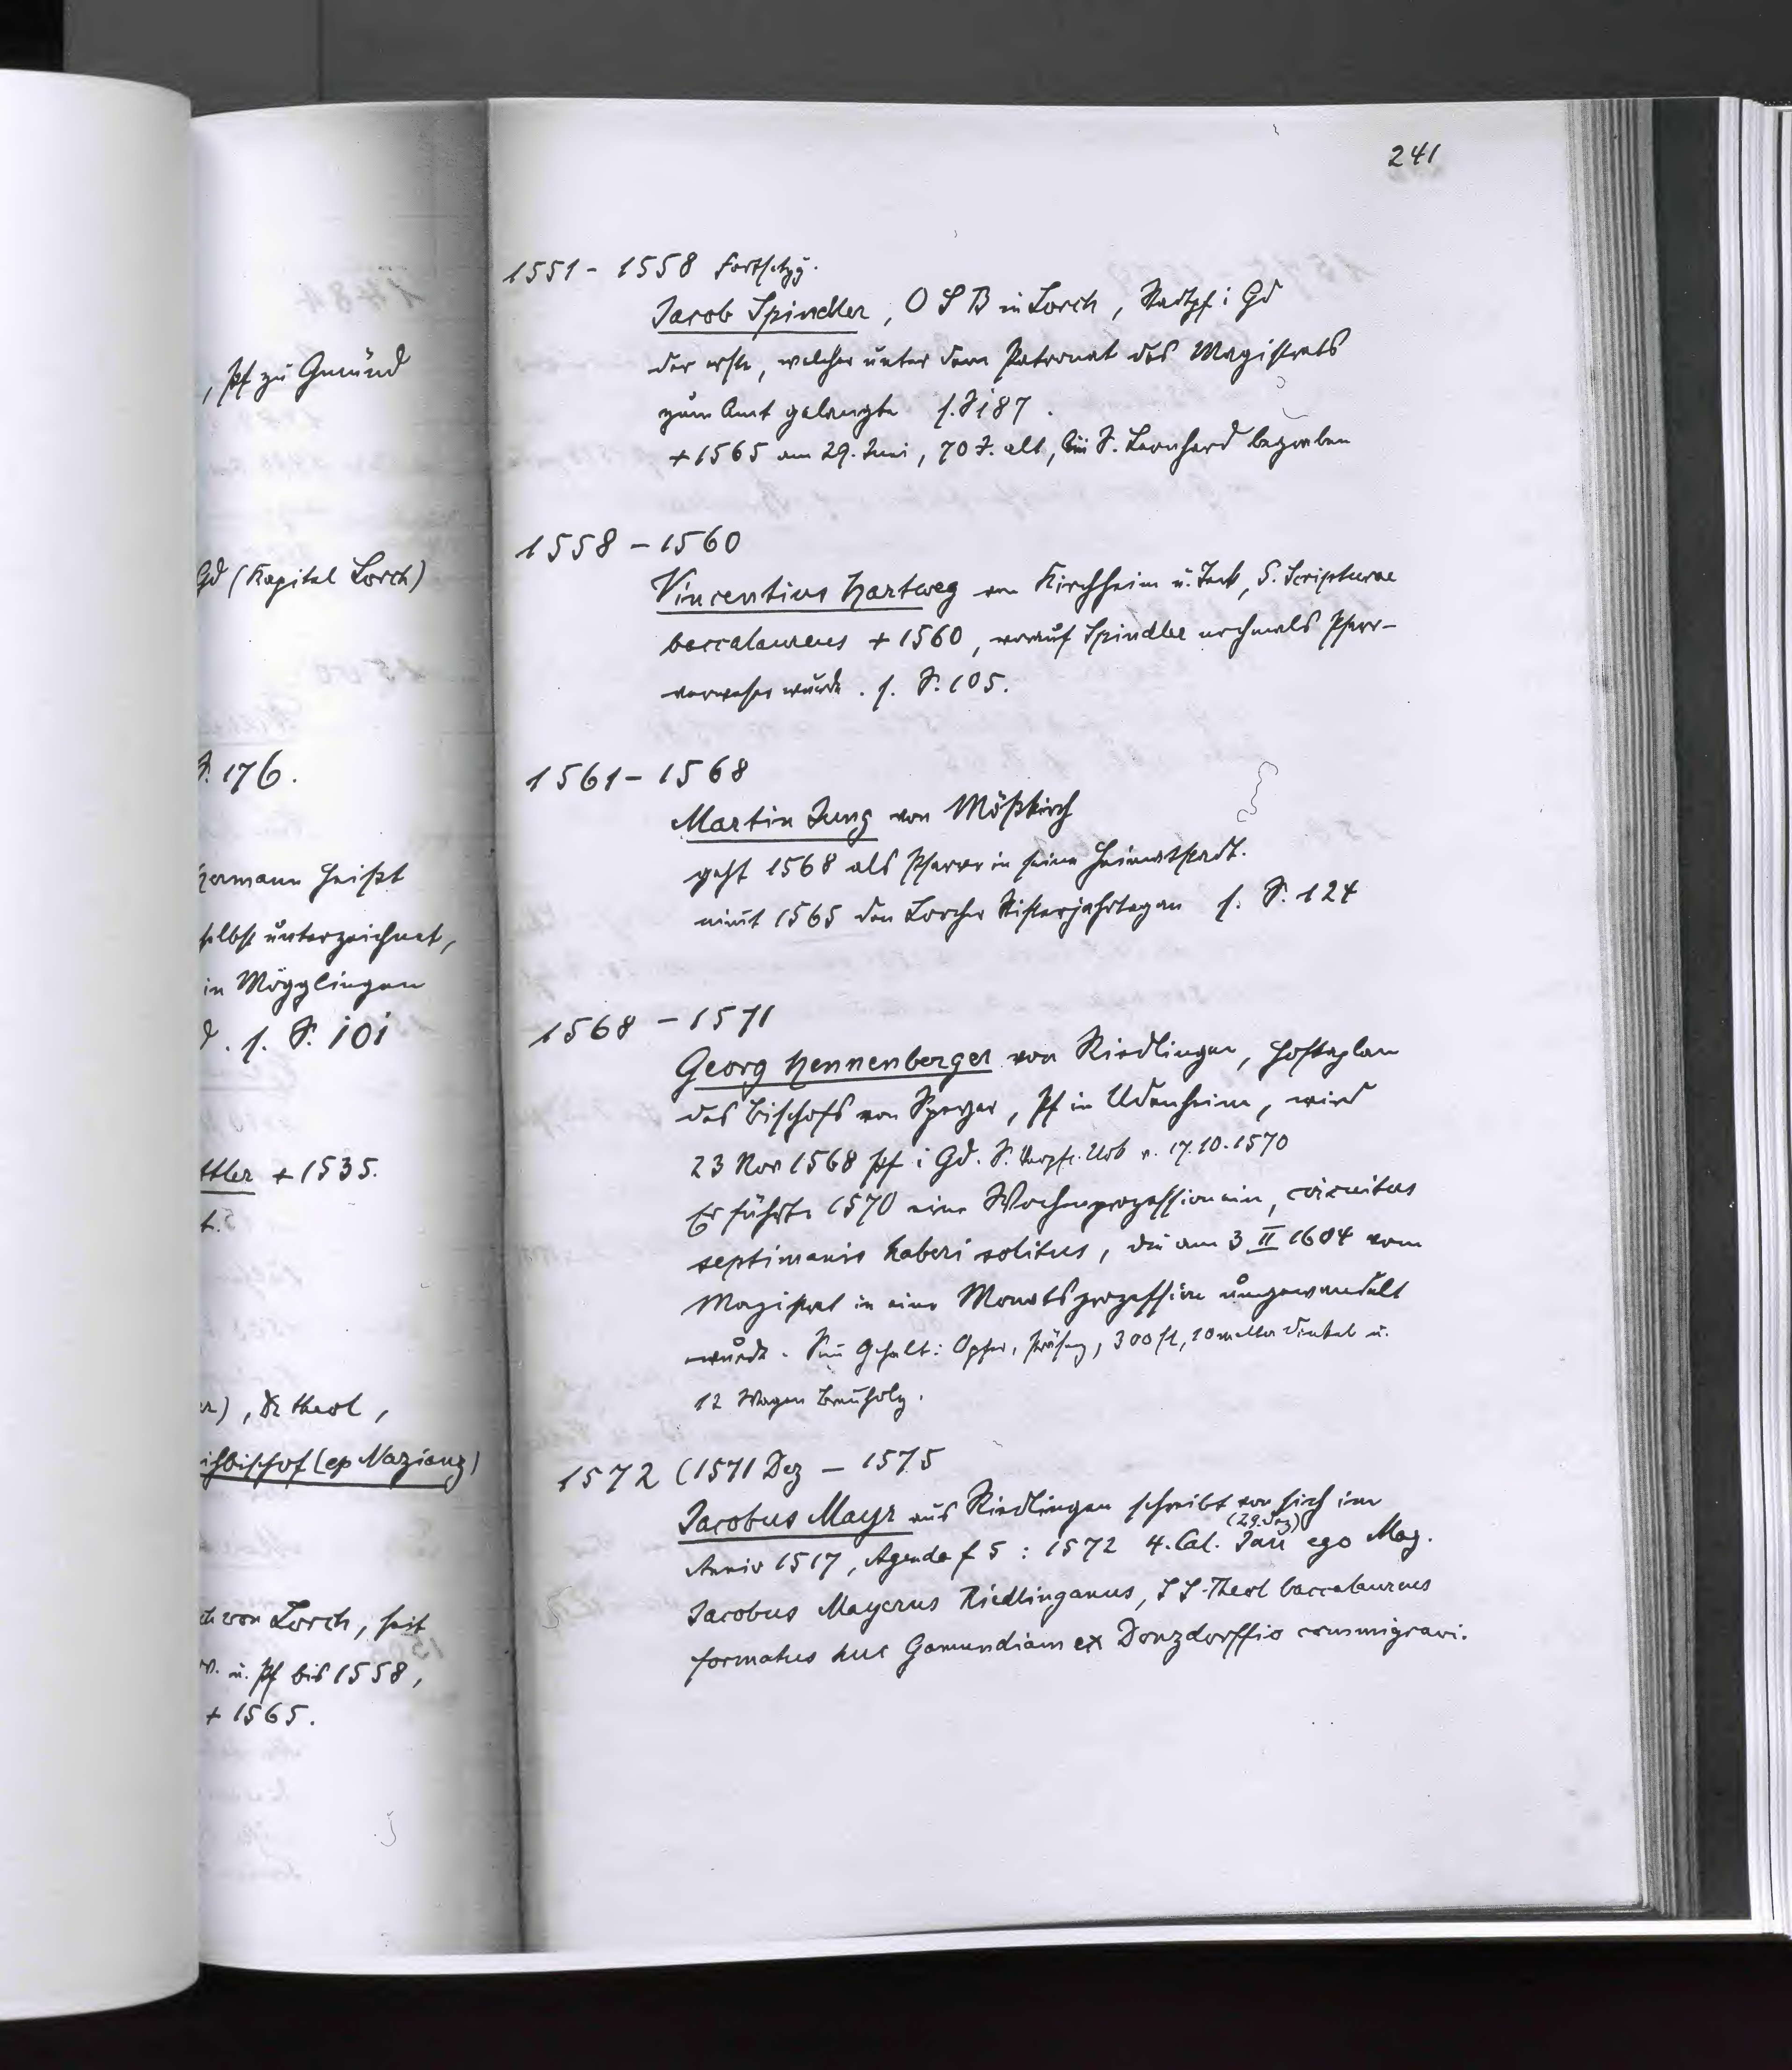 , Pf zu Gmünd
Gd (Kapitel Lorch)
S. 176.
Hermann heißt
selbst unterzeichnet,
in Mögglingen
d. s. S. 101
ttler + 1535.
t.
er), Dr theol,
ihbischof (ep Nazianz)
ch von Lorch, seit
rv. u. Pf bis 1558,
+ 1565.
241
1551 - 1558 Fortsetzg.
Jacob Spindler, O S B in Lorch, Stadtpf i Gd
der erste, welcher unter dem Patronat des Magistrats
zum Amt gelangte s. S 187.
+ 1565 am 29. Juni, 70 J. alt, bei S. Leonhard begraben
1558 - 1560
Vincentius Hartweg von Kirchheim u. Teck, S. Scripturae
baccalaureus + 1560, worauf Spindler nochmals Pfarr-
verweser wurde. s. S. 105.
1561 - 1568
Martin Jung von Mößkirch
geht 1568 als Pfarrer in seine Heimatstadt.
nimt 1565 den Lorcher Stifterjahrtag an s. S. 124
1568 - 1571
Georg Hennenberger von Riedlingen, Hofkaplan
des Bischofs von Speyer, Pf in Udenheim, wird
23 Nov 1568 Pf i Gd. S. Urk v. 17.10.1570
Er führte 1570 eine Wochenprozession ein, circuitus
septimanis haberi solitus, die am 3 II 1604 vom
Magistrat in eine Monatsprozession umgewandelt
wurde. Sein Gehalt: Opfer, Präsenz, 300 fl, 10 malter Dinkel u.
12 Wagen Brennholz.
1572 (1571 Dez - 1575
Jacobus Mayr aus Riedlingen schreibt von sich im
(29. Dez)
Anniv 1517, Agenda f 5 : 1572 4. Cal. Jan ego Mag.
Jacobus Mayerus Riedlinganus, S S. Theol baccalaureus
formatus huc Gamundiam ex Donzdorffio commigravi.